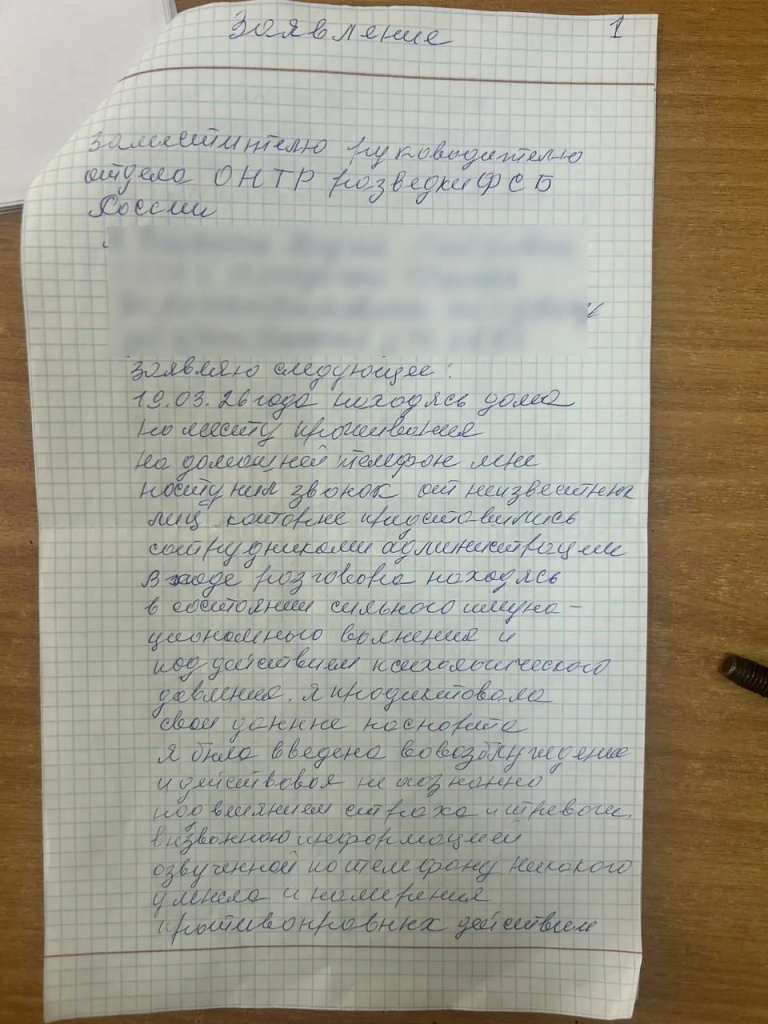 Заявление 1
Заместителю руководителю
отдела ОНТР разведки ФСБ
России
заявляю следующее:
19.03.26 года находясь дома
по месту проживания
на домашней телефон мне
поступил звонок от неизвестных
лиц которые представились
сотрудниками администрации
В ходе разговора находясь
в состоянии сильного эмуна-
ционального волнения и
под действием психологического
давления. я продиктовала
свои данные паспорта
я была введена в
и действовая не осознанно
под влиянием страха и тревоги,
визванною информацией
озвученной по телефону никакого
умысла и намерения
действием